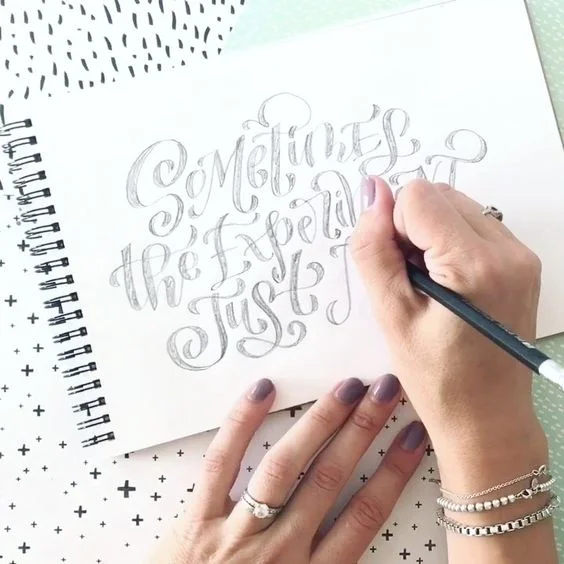 Sometimes
the Experiment
Just